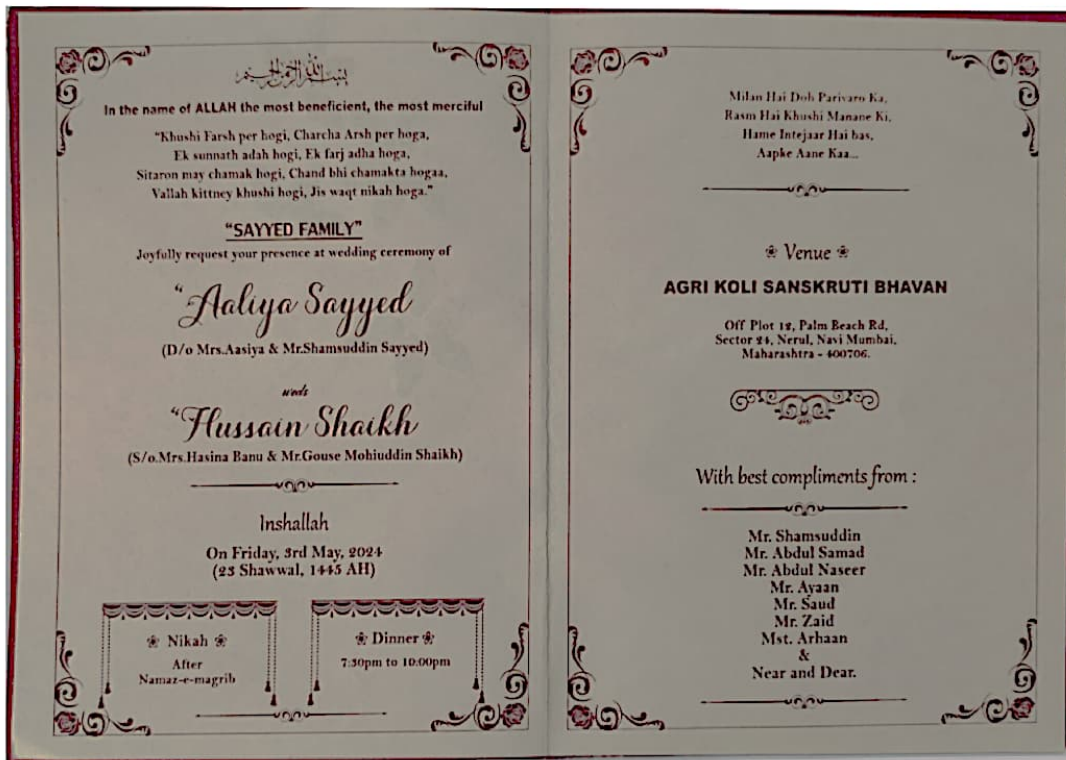 بسم الله الرحمن الرحيم
In the name of ALLAH the most beneficient, the most merciful
"Khushi Farsh per hogi, Charcha Arsh per hoga,
Ek sunnath adah hogi, Ek farj adha hoga,
Sitaron may chamak hogi, Chand bhi chamakta hogaa,
Vallah kittney khushi hogi, Jis waqt nikah hoga."
"SAYYED FAMILY"
Joyfully request your presence at wedding ceremony of
"Aaliya Sayyed
(D/o Mrs.Aasiya & Mr.Shamsuddin Sayyed)
weds
"Hussain Shaikh
(S/o.Mrs.Hasina Banu & Mr.Gouse Mohiuddin Shaikh)
Inshallah
On Friday, 3rd May, 2024
(23 Shawwal, 1445 AH)
Nikah
After
Namaz-e-magrib
Dinner
7:30pm to 10:00pm
Milan Hai Doh Parivaro Ka,
Rasm Hai Khushi Manane Ki,
Hame Intejaar Hai bas,
Aapke Aane Kaa...
Venue
AGRI KOLI SANSKRUTI BHAVAN
Off Plot 12, Palm Beach Rd,
Sector 24, Nerul, Navi Mumbai,
Maharashtra - 400706.
With best compliments from :
Mr. Shamsuddin
Mr. Abdul Samad
Mr. Abdul Naseer
Mr. Ayaan
Mr. Saud
Mr. Zaid
Mst. Arhaan
&
Near and Dear.